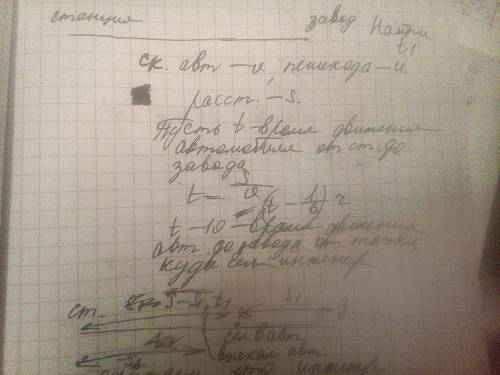 станция завод Найти
t₁
ск. авт – v, пешехода – u.
расст. – S.
Пусть t – время движения
автомобиля от ст. до
завода
t = S/v
(t – 1/6) ч.
t – 10 – время движения
авт. до завода от точки
куда сел инженер
ст. S – S₁ t₁ S₁ З.
сел в авт.
S₁ авт.
инженер